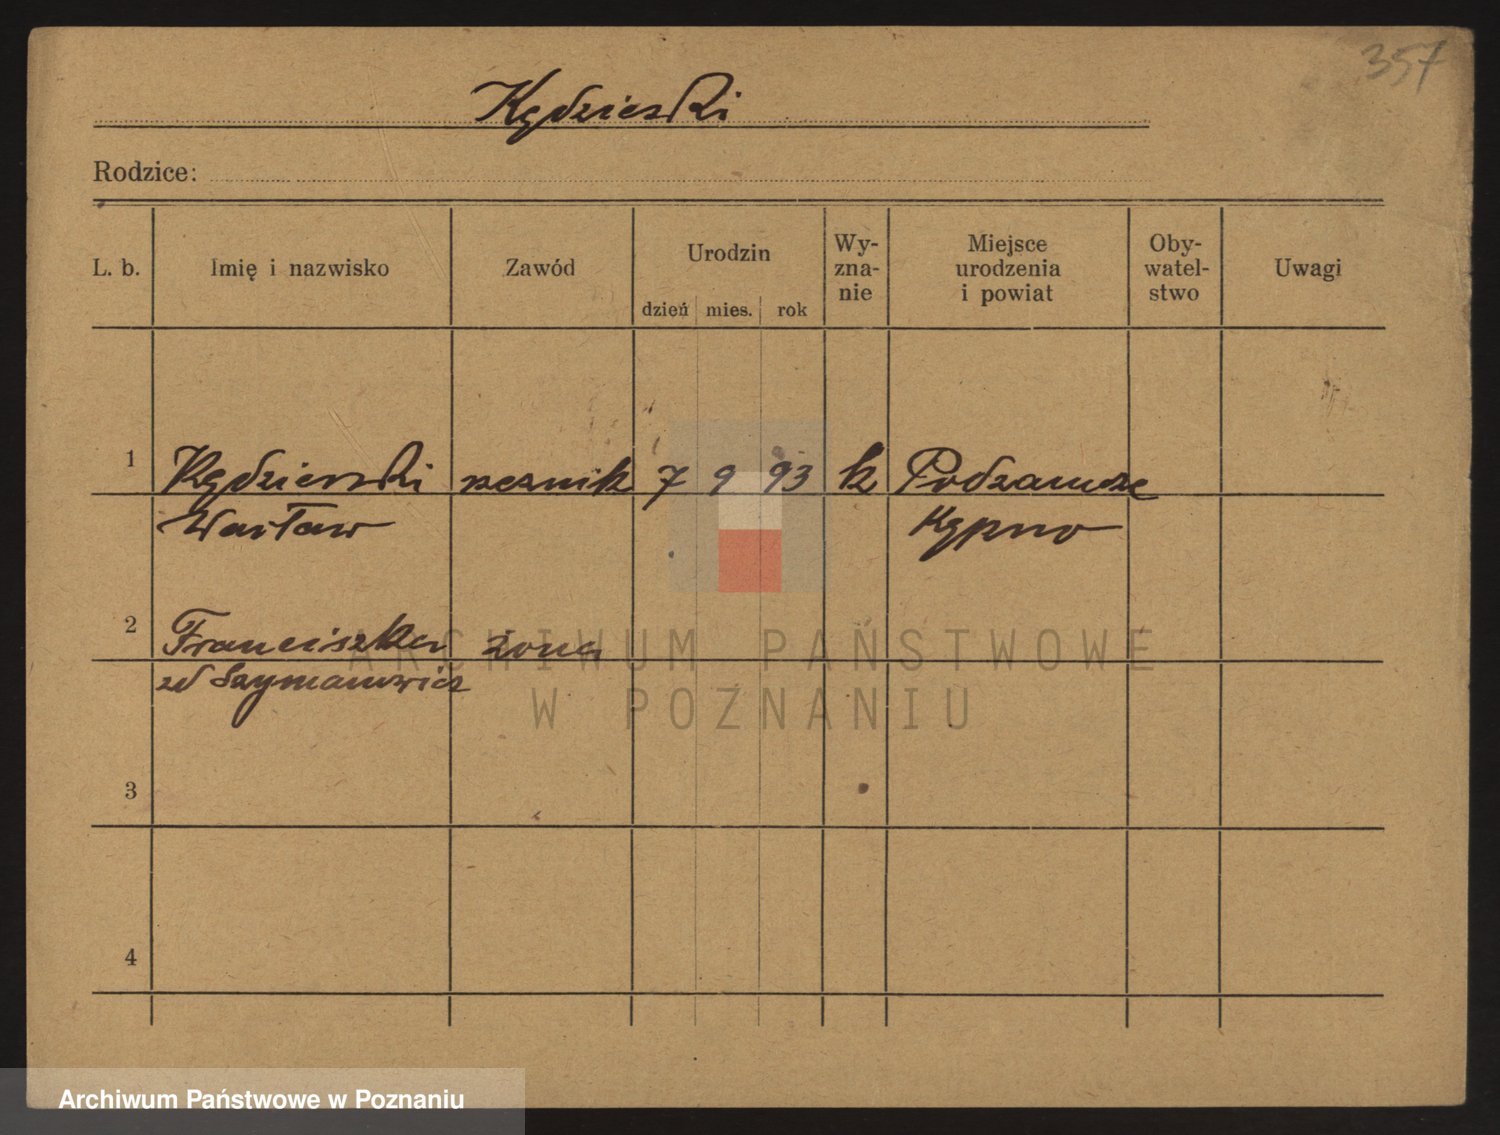 357
Kędzierski
Rodzice:
L. b. Imię i nazwisko Zawód Urodzin dzień mies. rok Wy-zna-nie Miejsce urodzenia i powiat Oby-watel-stwo Uwagi
1 Kędzierski rzeźnik 7 9 93 k Podzamcze
Wacław Kępno
2 Franciszka żona
zd Szymanowicz
3
4
ARCHIWUM PAŃSTWOWE
W POZNANIU
Archiwum Państwowe w Poznaniu